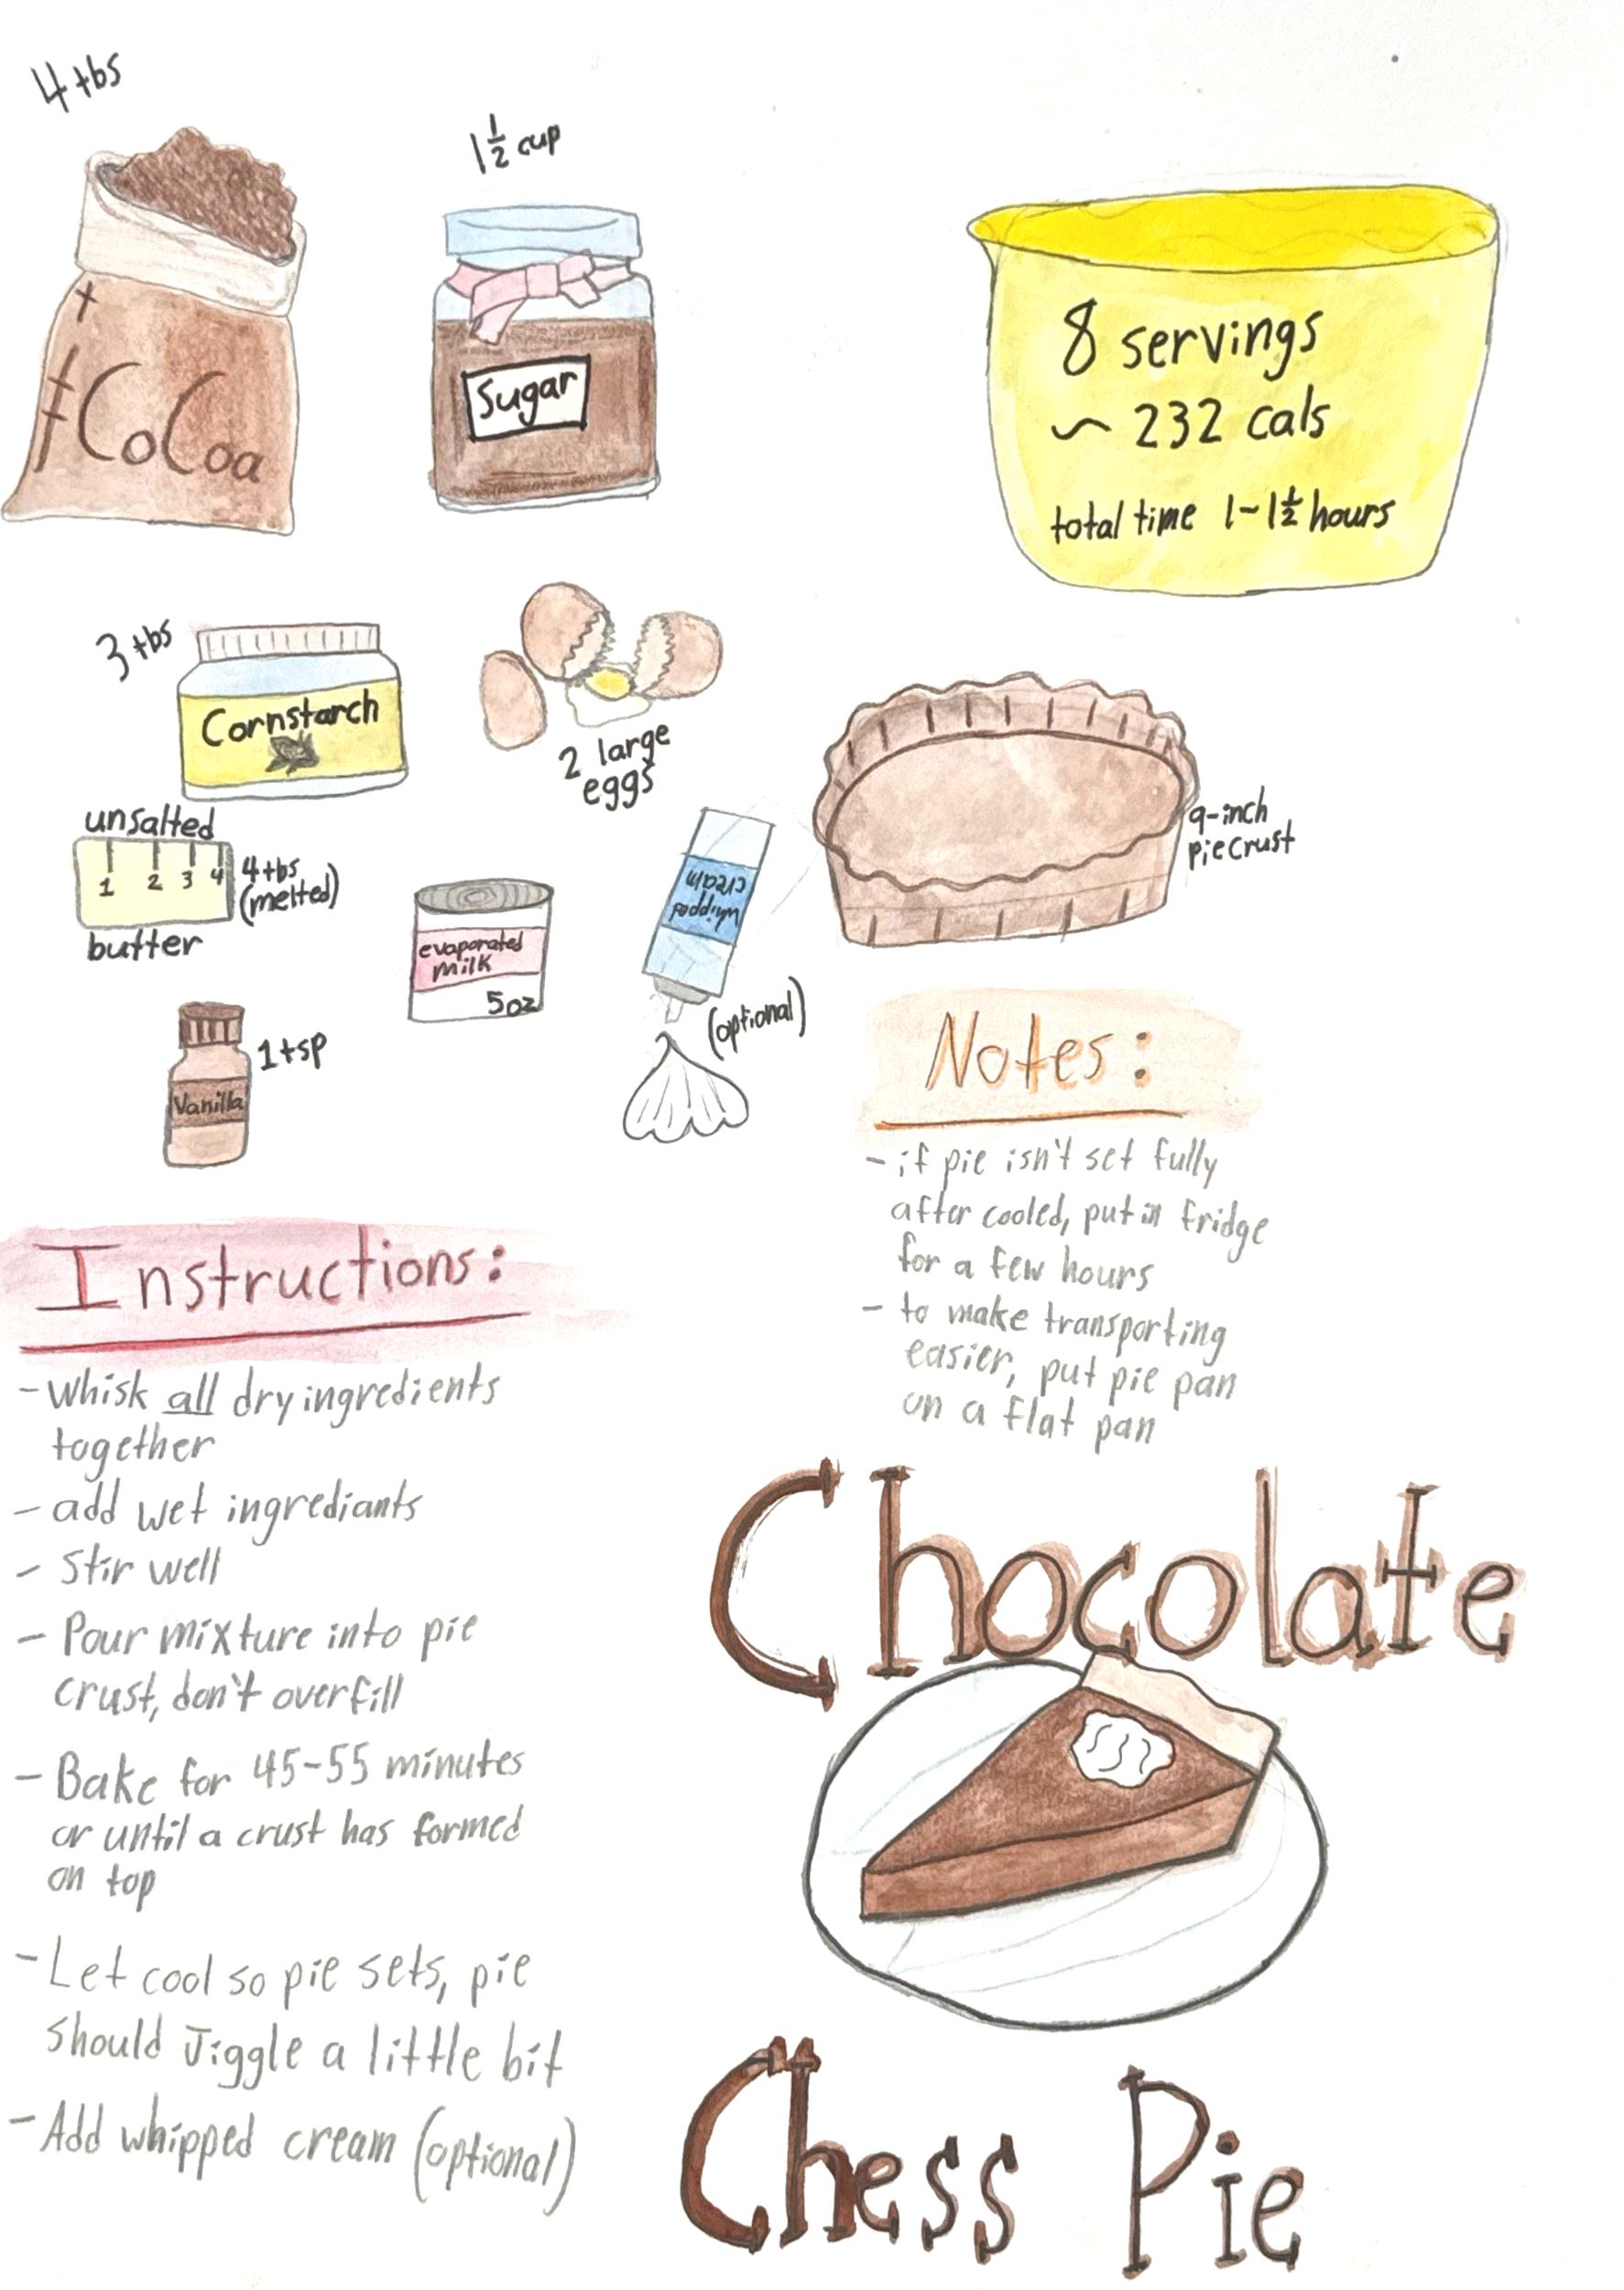 4 tbs
CoCoa
1 1/2 cup
Sugar
8 servings
~ 232 cals
total time 1-1 1/2 hours
3 tbs
Cornstarch
2 large
eggs
unsalted
1 2 3 4
4 tbs
(melted)
butter
evaporated
milk
5oz
whipped
cream
(optional)
9-inch
piecrust
1 tsp
Vanilla
Notes:
- if pie isn't set fully
after cooled, put in fridge
for a few hours
- to make transporting
easier, put pie pan
on a flat pan
Instructions:
- Whisk all dry ingredients
together
- add wet ingrediants
- Stir well
- Pour mixture into pie
crust, don't overfill
- Bake for 45-55 minutes
or until a crust has formed
on top
- Let cool so pie sets, pie
should Jiggle a little bit
- Add whipped cream (optional)
Chocolate
Chess Pie